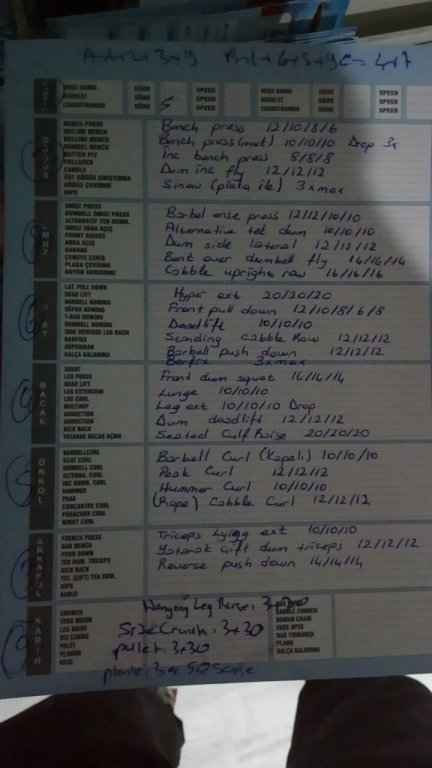 A=1+2+3+9 B=1+6+5+9 C=4+7
KOŞU BANDI SÜRE SPEED KOŞU BANDI SÜRE SPEED
BISIKLET SÜRE 5 SPEED BISIKLET SÜRE SPEED
CROSSTRAINER SÜRE SPEED CROSSTRAINER SÜRE SPEED
GÖĞÜS
BENCH PRESS
INCLINE BENCH
DECLINE BENCH
DUMBEL BENCH
BUTTER FLY
PULLOVER
CABBLE
ÜST GÖĞÜS SIKIŞTIRMA
GÖĞÜS ÇEVİRME
DIPS
Bench press 12/10/8/6
Bench press (mat) 10/10/10 Drop 3x
İnc bench press 8/8/8
Dum inc fly 12/12/12
Sınav (plaka ile) 3xmax
OMUZ
OMUZ PRESS
DUMBELL OMUZ PRESS
ALTERNATIF TEK DUMB.
OMUZ YANA AÇIŞ
FRONT RAISES
ARKA AÇIŞ
ÇENEYE ÇEKİŞ
PLAKA ÇEVİRME
BOYUN
Barbel ense press 12/12/10/10
Alternative tek dum 10/10/10
Dum side lateral 12/12/12
Bent over dumbell fly 14/14/14
Cabble upright row 16/16/16
SIRT
LAT PULL DOWN
DEAD LIFT
BARBELL ROWING
SÜPER ROWING
T-BAR ROWING
DUMBELL ROWING
SIDE REVERSE LEG RAISE
BARFİKS
SÜPERMAN
KALÇA KALDIRMA
Hyper ext 20/20/20
Front pull down 12/10/8/6/8
Deadlift 10/10/10
Standing cabble Row 12/12/12
Barbell push down 12/12/12
Barfix 3xmax
BACAK
SQUAT
LEG PRESS
DEAD LIFT
LEG EXTENSION
LEG CURL
MULTIHIP
ABDUCTION
ADDUCTION
KICK BACK
YATARAK BACAK AÇMA
Front dum squat 14/14/14
Lunge 10/10/10
Leg ext 10/10/10 Drop
Dum deadlift 12/12/12
Seated Calf Raise 20/20/20
ÖNKOL
BARBELLCURL
SCAT CURL
DUMBELL CURL
ALTERNA. CURL
INC DUMB. CURL
HAMMER
PEAK
CONCANTRE CURL
PREACHER CURL
WRIST CURL
Barbell Curl (Kapalı) 10/10/10
Peak Curl 12/12/12
Hummer Curl 10/10/10
(Rope) Cabble Curl 12/12/12
ARKAKOL
FRENCH PRESS
BAR BENCH
PUSH DOWN
TEK DUM. TRICEPS
KICK BACK
YAT. (ÇİFT) TEK DUM.
DIPS
KABLO
Triceps Lying ext 10/10/10
Yatarak çift dum triceps 12/12/12
Reverse push down 14/14/14
KARIN
CRUNCH
TERS MEKİK
LEG RAISE
DIZ ÇEKME
PALET
PLANOR
KILIÇ
Hanging Leg Raise: 3+20
Side Crunch: 3+30
pullet: 3+30
plank: 3x50 Saniye
CABBLE CRUNCH
ROMAN CHAIR
KNEE UPSS
DAĞ TIRMANIŞI
PLANK
KALÇA KALDIRMA